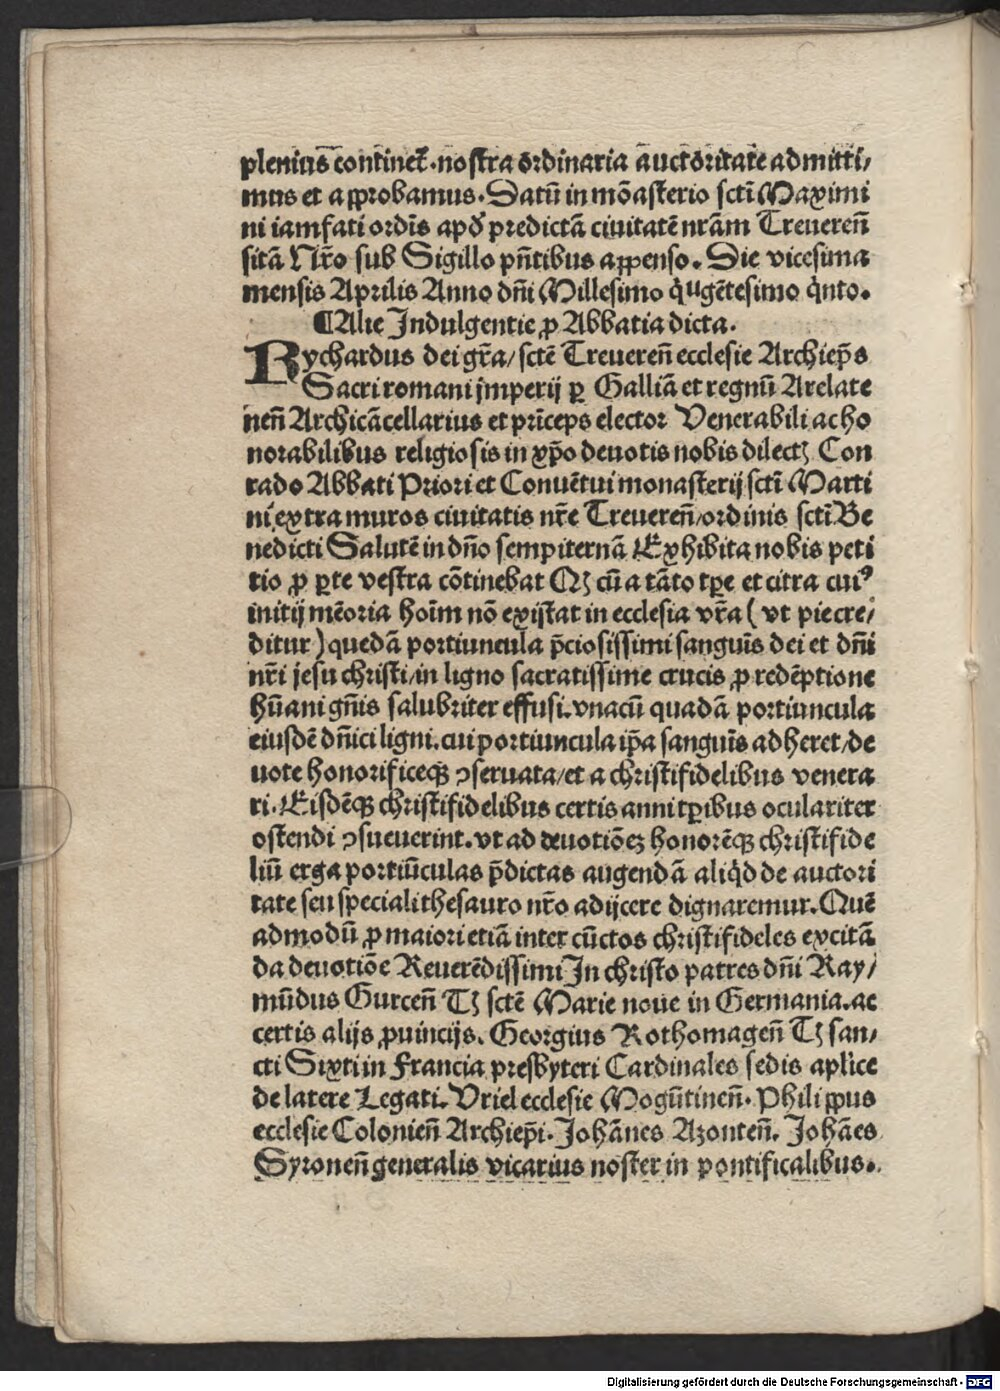 plenius continet̄. nostra ordinaria auctoritate admitti/
mus et approbamus. Datū in mōasterio sctī Maximi
ni iamfati ordīs apd̕ predictā ciuitatē nrām Treuereñ
sitā Nr̄o sub Sigillo pñtibus appenso. Die vicesima
mensis Aprilis Anno dñi Millesimo qͥugētesimo qͥnto.
¶Alie Indulgentie ꝓ Abbatia dicta.
Rychardus dei gr̄a/ sctē Treuereñ ecclesie Archiep̄s
Sacri romani jmperij ꝑ Galliā et regnū Arelate
neñ Archicācellarius et prīceps elector Venerabili ac ho
norabilibus religiosis in xp̄o deuotis nobis dilectꝫ Con
rado Abbati Priori et Conuētui monasterij sctī Marti
ni extra muros ciuitatis nr̄e Treuereñ/ordinis sctī Be
nedicti Salutē in dño sempiternā Exhibita nobis peti
tio ꝓ ꝑte vestra cōtinebat Qꝫ cū a tāto tꝑe et citra cuiꝰ
initij mēoria hoīm nō exijstat in ecclesia vr̄a ( vt pie cre/
ditur ) quedā portiuncula p̄ciosissimi sanguīs dei et dñi
nr̄i jesu christi/in ligno sacratissime crucis ꝓ redēptione
hūani gñis salubriter effusi. vnacū quadā portiuncula
eiusdē dñici ligni. cui portiuncula ip̄a sanguīs adheret/de
uote honorificeqꝫ ꝯseruata/et a christifidelibus venera
ri. Eisdēqꝫ christifidelibus certis anni tꝑibus oculariter
ostendi ꝯsueuerint. vt ad deuotiōeꝫ honorēqꝫ christifide
liū erga portiūculas p̄dictas augendā aliqͥd de auctori
tate seu speciali thesauro nr̄o adijcere dignaremur. Quē
admodū ꝓ maiori etiā inter cūctos christifideles excitā
da deuotiōe Reuerēdissimi In christo patres dñi Ray/
mūdus Gurceñ Tꝫ sctē Marie noue in Germania. ac
certis alijs ꝓuincijs. Georgius Rothomageñ Tꝫ san/
cti Sixti in Francia presbyteri Cardinales sedis aplice
de latere Legati. Vriel ecclesie Mogūtineñ. Philippus
ecclesie Colonieñ Archiep̄i. Johānes Azonteñ. Johāes
Syroneñ generalis vicarius noster in pontificalibus.
Digitalisierung gefördert durch die Deutsche Forschungsgemeinschaft - DFG